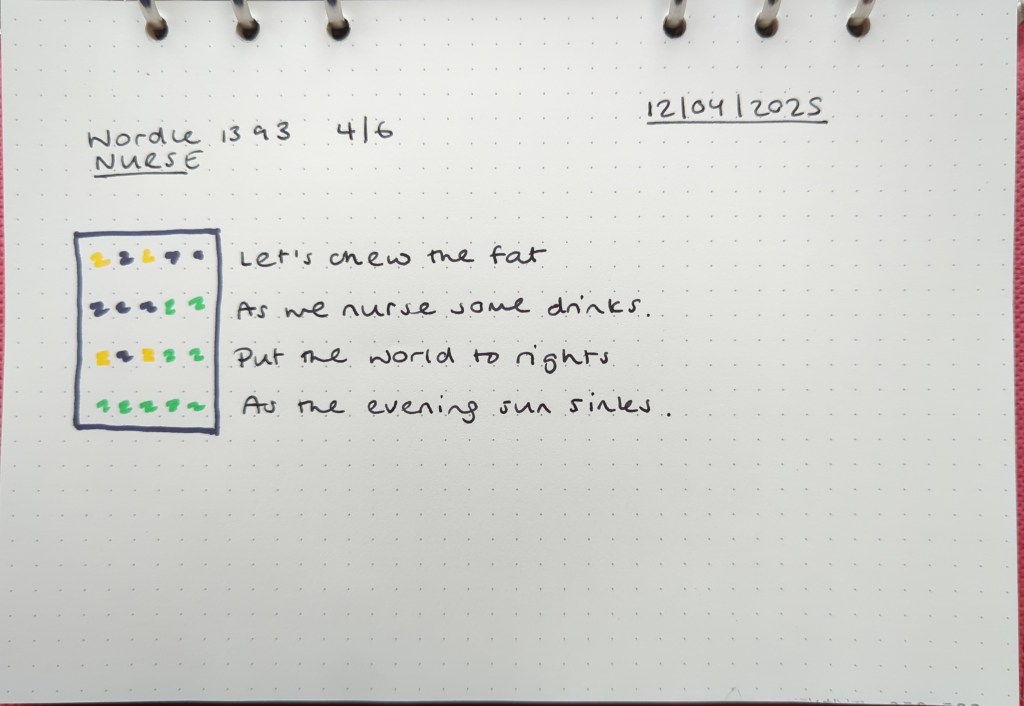 12/04/2025
Wordle 1393 4/6
NURSE
Let's chew the fat
As we nurse some drinks.
Put the world to rights
As the evening sun sinks.